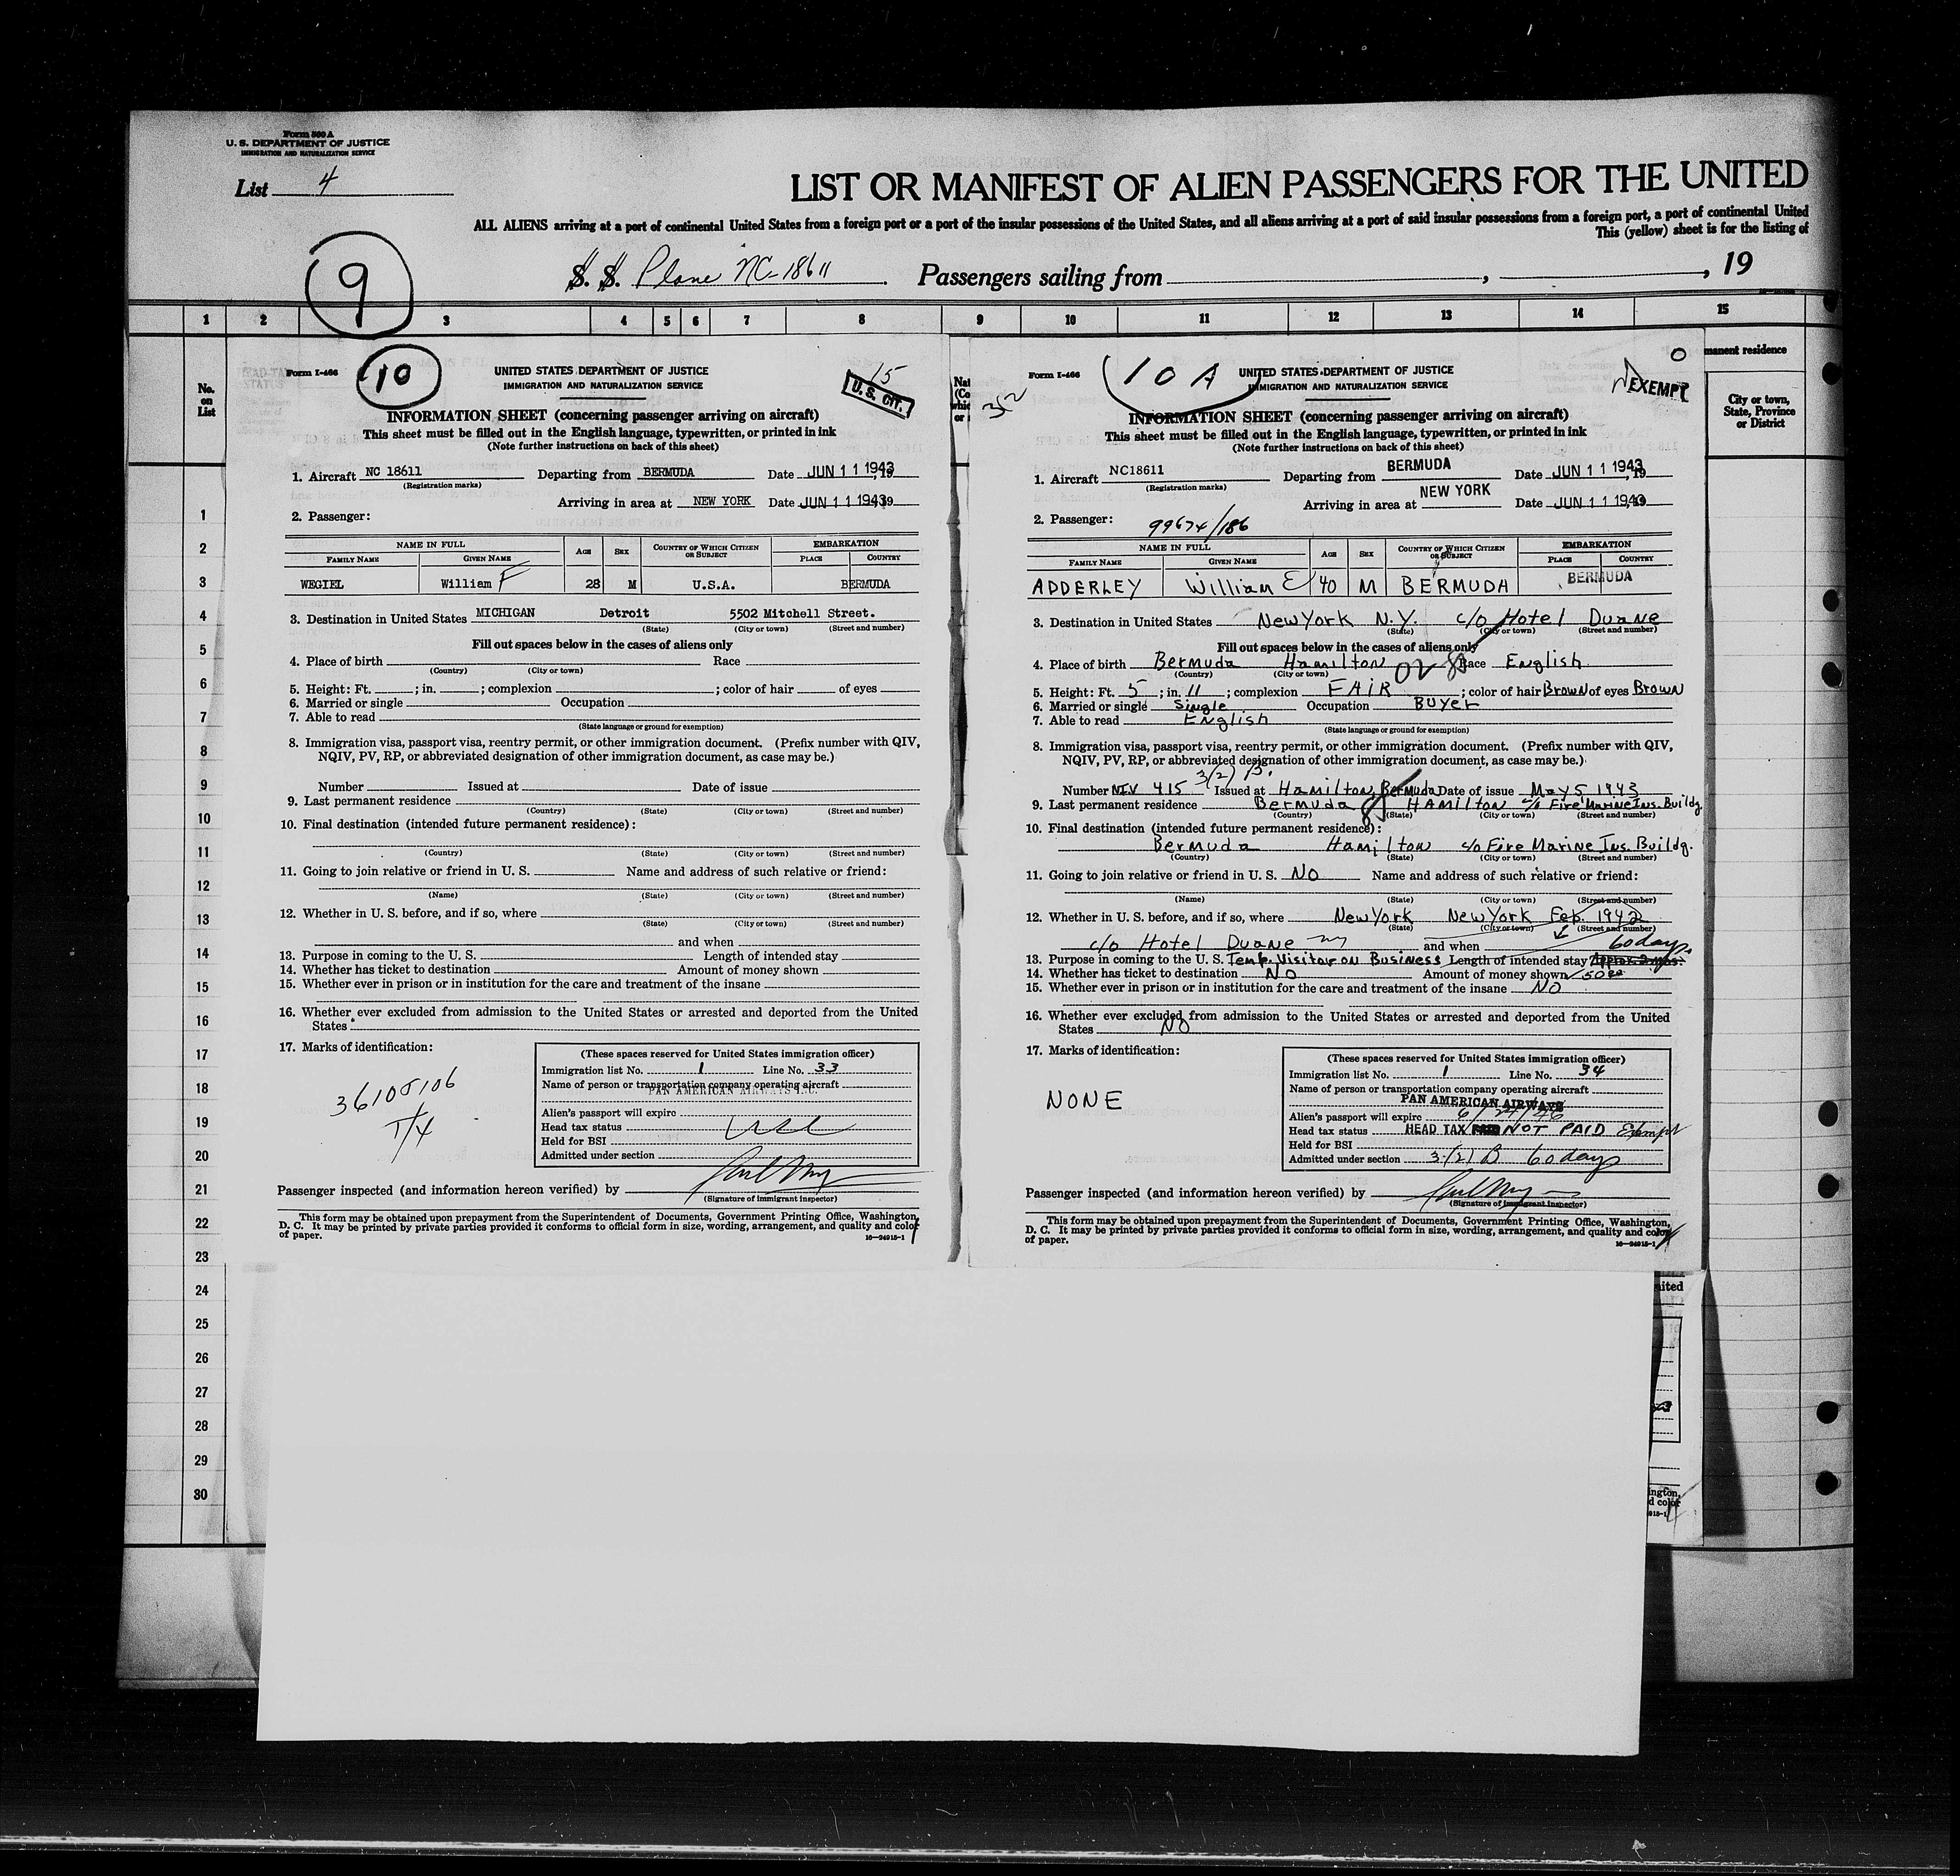 Form 500 A
U. S. DEPARTMENT OF JUSTICE
IMMIGRATION AND NATURALIZATION SERVICE
List 4
LIST OR MANIFEST OF ALIEN PASSENGERS FOR THE UNITED
ALL ALIENS arriving at a port of continental United States from a foreign port or a port of the insular possessions of the United States, and all aliens arriving at a port of said insular possessions from a foreign port, a port of continental United
This (yellow) sheet is for the listing of
9
S. S. Plane NC-18611 Passengers sailing from , 19
1 2 3 4 5 6 7 8 9 10 11 12 13 14 15
No. on List
1
2
3
4
5
6
7
8
9
10
11
12
13
14
15
16
17
18
19
20
21
22
23
24
25
26
27
28
29
30
Form I-466
10
UNITED STATES DEPARTMENT OF JUSTICE
IMMIGRATION AND NATURALIZATION SERVICE
15
U. S. CIT.
INFORMATION SHEET (concerning passenger arriving on aircraft)
This sheet must be filled out in the English language, typewritten, or printed in ink
(Note further instructions on back of this sheet)
1. Aircraft NC 18611 Departing from BERMUDA Date JUN 11 1943, 19
(Registration marks)
Arriving in area at NEW YORK Date JUN 11 1943, 19
2. Passenger:
NAME IN FULL AGE SEX COUNTRY OF WHICH CITIZEN OR SUBJECT EMBARKATION
FAMILY NAME GIVEN NAME PLACE COUNTRY
WEGIEL William F 28 M U.S.A. BERMUDA
3. Destination in United States MICHIGAN Detroit 5502 Mitchell Street.
(State) (City or town) (Street and number)
Fill out spaces below in the cases of aliens only
4. Place of birth Race
(Country) (City or town)
5. Height: Ft. ; in. ; complexion ; color of hair of eyes
6. Married or single Occupation
7. Able to read
(State language or ground for exemption)
8. Immigration visa, passport visa, reentry permit, or other immigration document. (Prefix number with QIV,
NQIV, PV, RP, or abbreviated designation of other immigration document, as case may be.)
Number Issued at Date of issue
9. Last permanent residence
(Country) (State) (City or town) (Street and number)
10. Final destination (intended future permanent residence):
(Country) (State) (City or town) (Street and number)
11. Going to join relative or friend in U. S. Name and address of such relative or friend:
(Name) (State) (City or town) (Street and number)
12. Whether in U. S. before, and if so, where
(State) (City or town) (Street and number)
and when
13. Purpose in coming to the U. S. Length of intended stay
14. Whether has ticket to destination Amount of money shown
15. Whether ever in prison or in institution for the care and treatment of the insane
16. Whether ever excluded from admission to the United States or arrested and deported from the United
States
17. Marks of identification:
36105106
T/4
(These spaces reserved for United States immigration officer)
Immigration list No. 1 Line No. 33
Name of person or transportation company operating aircraft
PAN AMERICAN AIRWAYS INC.
Alien's passport will expire
Head tax status USC
Held for BSI
Admitted under section
Passenger inspected (and information hereon verified) by
(Signature of immigrant inspector)
This form may be obtained upon prepayment from the Superintendent of Documents, Government Printing Office, Washington,
D. C. It may be printed by private parties provided it conforms to official form in size, wording, arrangement, and quality and color
of paper. 16—24915-1
352
Form I-466
10 A
UNITED STATES DEPARTMENT OF JUSTICE
IMMIGRATION AND NATURALIZATION SERVICE
O
EXEMPT
INFORMATION SHEET (concerning passenger arriving on aircraft)
This sheet must be filled out in the English language, typewritten, or printed in ink
(Note further instructions on back of this sheet)
1. Aircraft NC18611 Departing from BERMUDA Date JUN 11 1943, 19
(Registration marks)
Arriving in area at NEW YORK Date JUN 11 1943, 19
2. Passenger: 99674/186
NAME IN FULL AGE SEX COUNTRY OF WHICH CITIZEN OR SUBJECT EMBARKATION
FAMILY NAME GIVEN NAME PLACE COUNTRY
ADDERLEY William E 40 M BERMUDA BERMUDA
3. Destination in United States New York N.Y. c/o Hotel Duane
(State) (City or town) (Street and number)
Fill out spaces below in the cases of aliens only
4. Place of birth Bermuda Hamilton Race English
(Country) (City or town)
5. Height: Ft. 5 ; in. 11 ; complexion FAIR ; color of hair Brown of eyes Brown
6. Married or single Single Occupation BUYER
7. Able to read English
(State language or ground for exemption)
8. Immigration visa, passport visa, reentry permit, or other immigration document. (Prefix number with QIV,
NQIV, PV, RP, or abbreviated designation of other immigration document, as case may be.)
3(2) B.
Number NIV 415 Issued at Hamilton, Bermuda Date of issue May 5 1943
9. Last permanent residence Bermuda HAMILTON c/o Fire Marine Ins. Buildg.
(Country) (State) (City or town) (Street and number)
10. Final destination (intended future permanent residence):
Bermuda Hamilton c/o Fire Marine Ins. Buildg.
(Country) (State) (City or town) (Street and number)
11. Going to join relative or friend in U. S. No Name and address of such relative or friend:
(Name) (State) (City or town) (Street and number)
12. Whether in U. S. before, and if so, where New York New York Feb. 1942
(State) (City or town) (Street and number)
c/o Hotel Duane and when 60 days
13. Purpose in coming to the U. S. Temp. Visitor on Business Length of intended stay Approx. 2 mos.
14. Whether has ticket to destination No Amount of money shown 50 00
15. Whether ever in prison or in institution for the care and treatment of the insane NO
16. Whether ever excluded from admission to the United States or arrested and deported from the United
States NO
17. Marks of identification:
NONE
(These spaces reserved for United States immigration officer)
Immigration list No. 1 Line No. 34
Name of person or transportation company operating aircraft
PAN AMERICAN AIRWAYS
Alien's passport will expire 6/24/46
Head tax status HEAD TAX PAID NOT PAID Exempt
Held for BSI
Admitted under section 3(2) B 60 days
Passenger inspected (and information hereon verified) by
(Signature of immigrant inspector)
This form may be obtained upon prepayment from the Superintendent of Documents, Government Printing Office, Washington,
D. C. It may be printed by private parties provided it conforms to official form in size, wording, arrangement, and quality and color
of paper. 16—24915-1
manent residence
City or town,
State, Province
or District